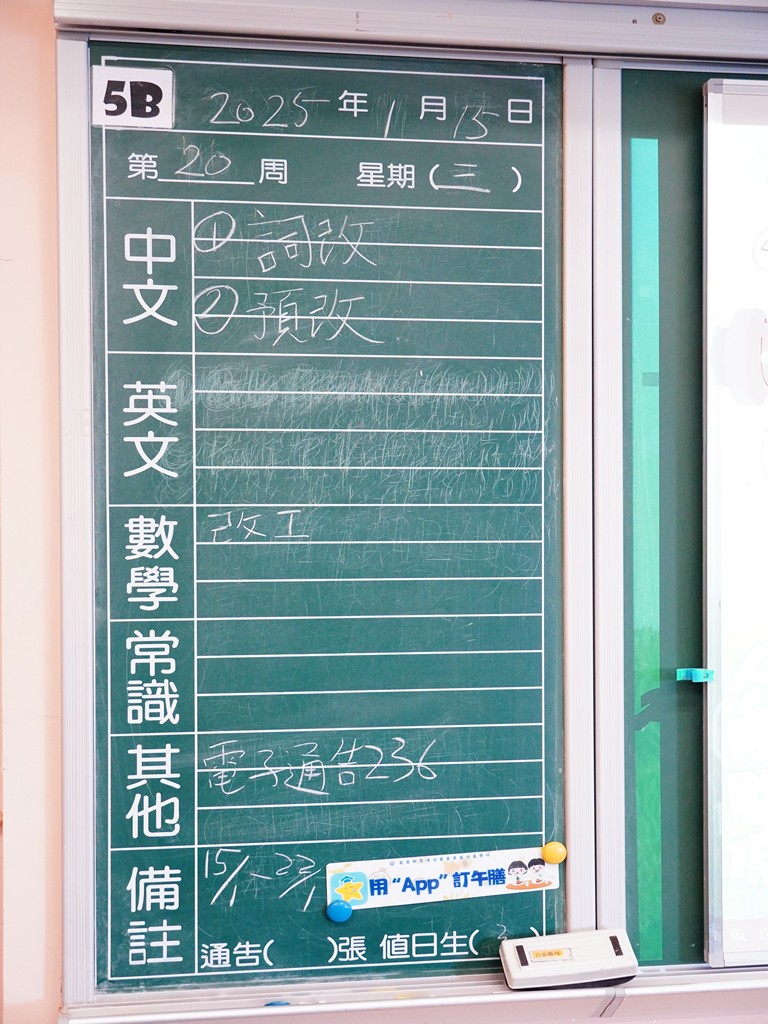 5B 2025年1月15日
第20周 星期(三)
中文 ① 詞改
② 預改
英文
數學 改工
常識
其他 電子通告236
備註 15/1-23/1
用“App”訂午膳
通告( )張 值日生( )